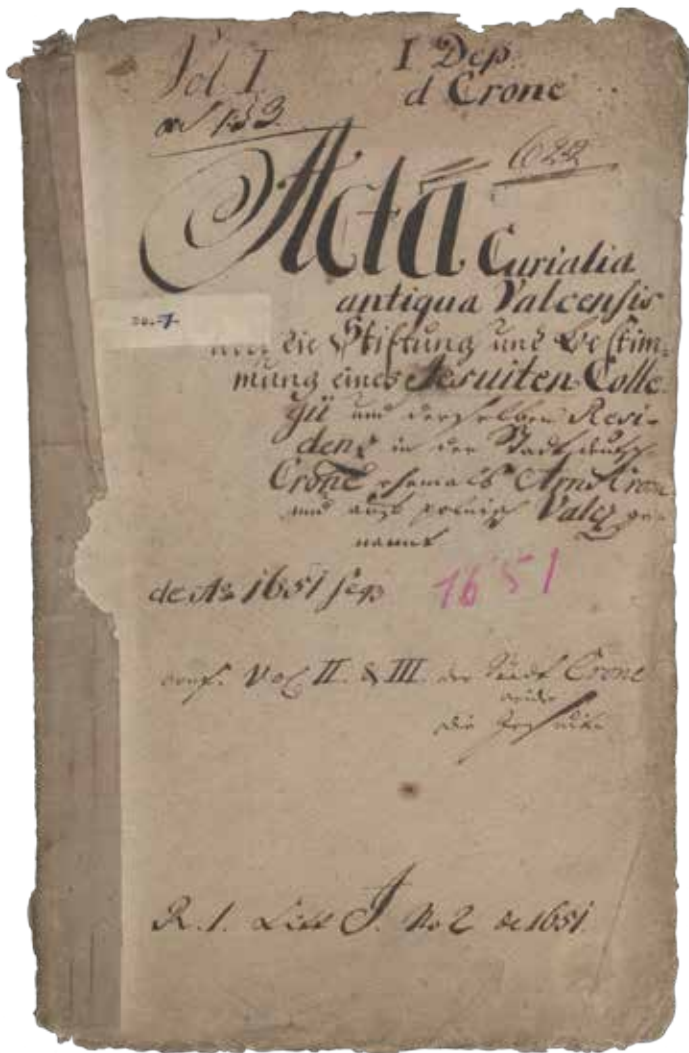 Vol I.
I Dep.
d Crone
Acta Curialia
antiqua Valcensis
die Stiftung und Bestim=
mung eines Jesuiten Colle=
gii und derselben Resi=
denz in der Stadt deutsch
Crone ehemals Arns Crone
und auf polnisch Valcz ge=
nannt
de Ao 1651 seqq
1651
conf. Vol II. & III. der Stadt Crone
wider
die Jesuiten
R. 1. Litt J. No 2 de 1651.